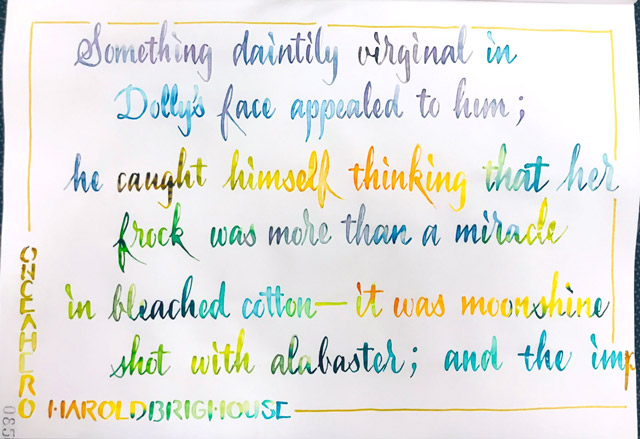 Something daintily virginal in
Dolly's face appealed to him;
he caught himself thinking that her
frock was more than a miracle
in bleached cotton—it was moonshine
shot with alabaster; and the imp
ONCEAHERO
HAROLDBRIGHOUSE
085